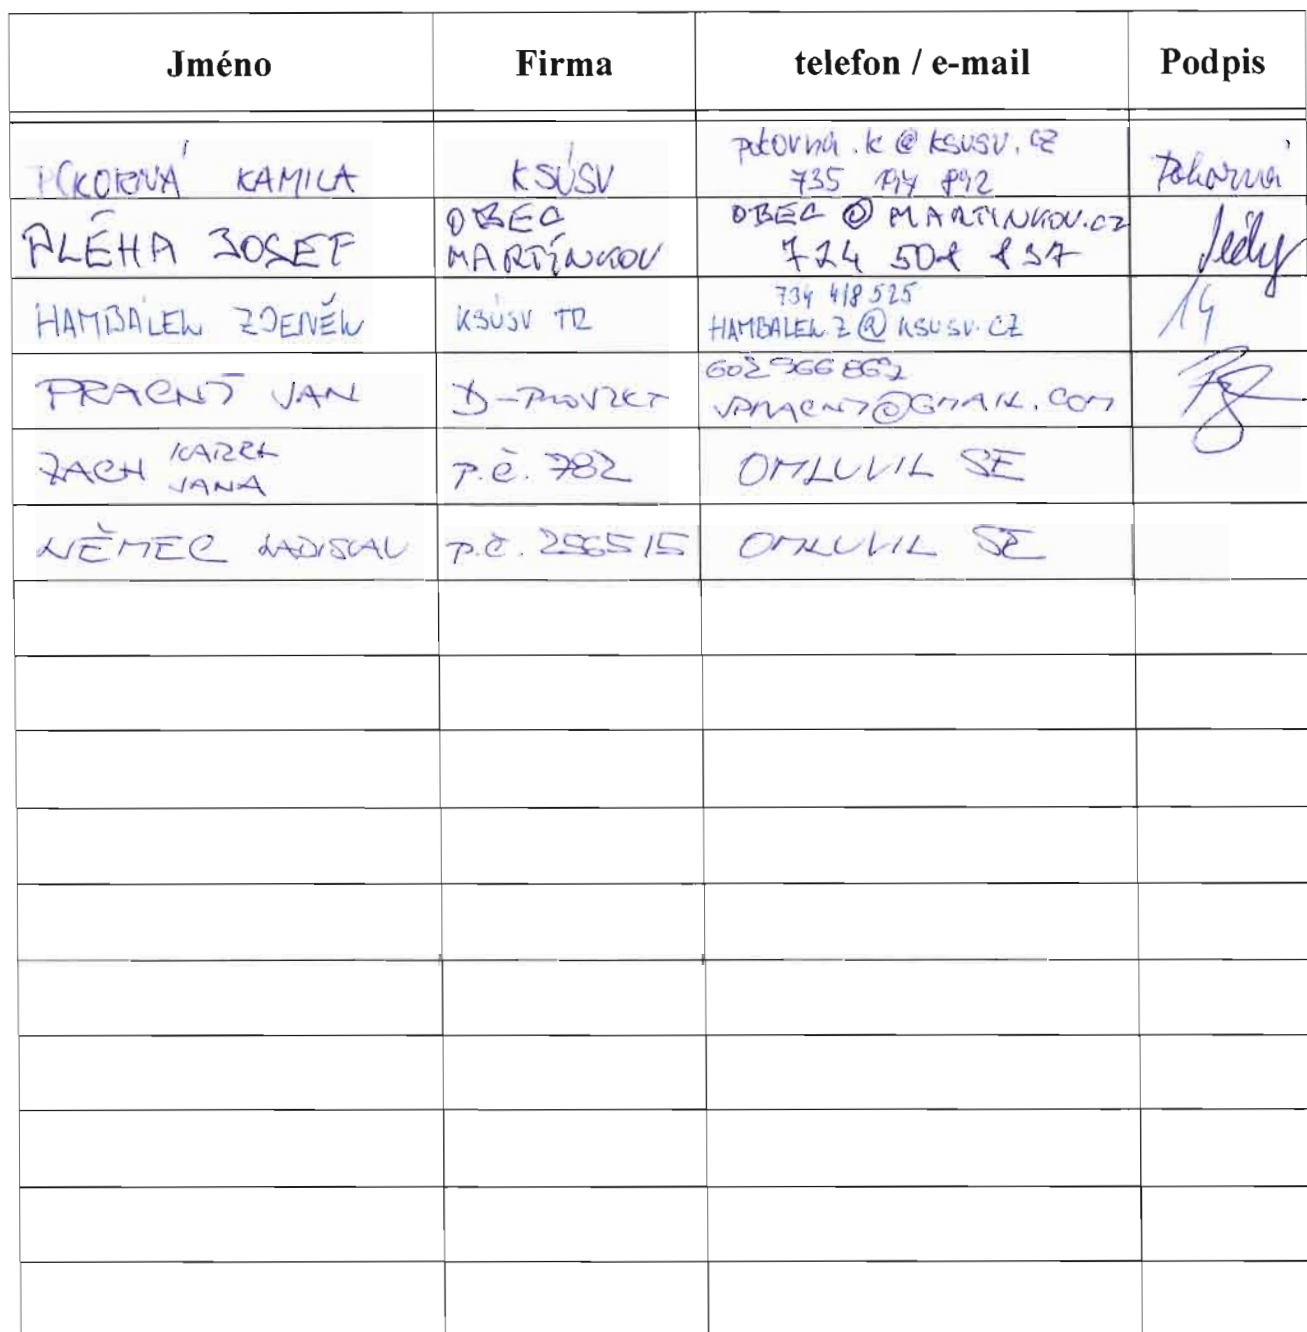 Jméno Firma telefon / e-mail Podpis
POKORNÁ KAMILA KSÚSV pokorna.k@ksusv.cz
735 194 892 Pokorná
PLÉHA JOSEF OBEC
MARTÍNKOV OBEC@MARTINKOV.CZ
724 501 837
HAMBÁLEK ZDENĚK KSÚSV TR 734 418 525
HAMBALEK.Z@KSUSV.CZ
PRACNÝ JAN D-PROJEKT 602 566 862
JPRACNY@GMAIL.COM
ZACH KAREL
JANA p.č. 782 OMLUVIL SE
NĚMEC LADISLAV p.č. 2565/5 OMLUVIL SE